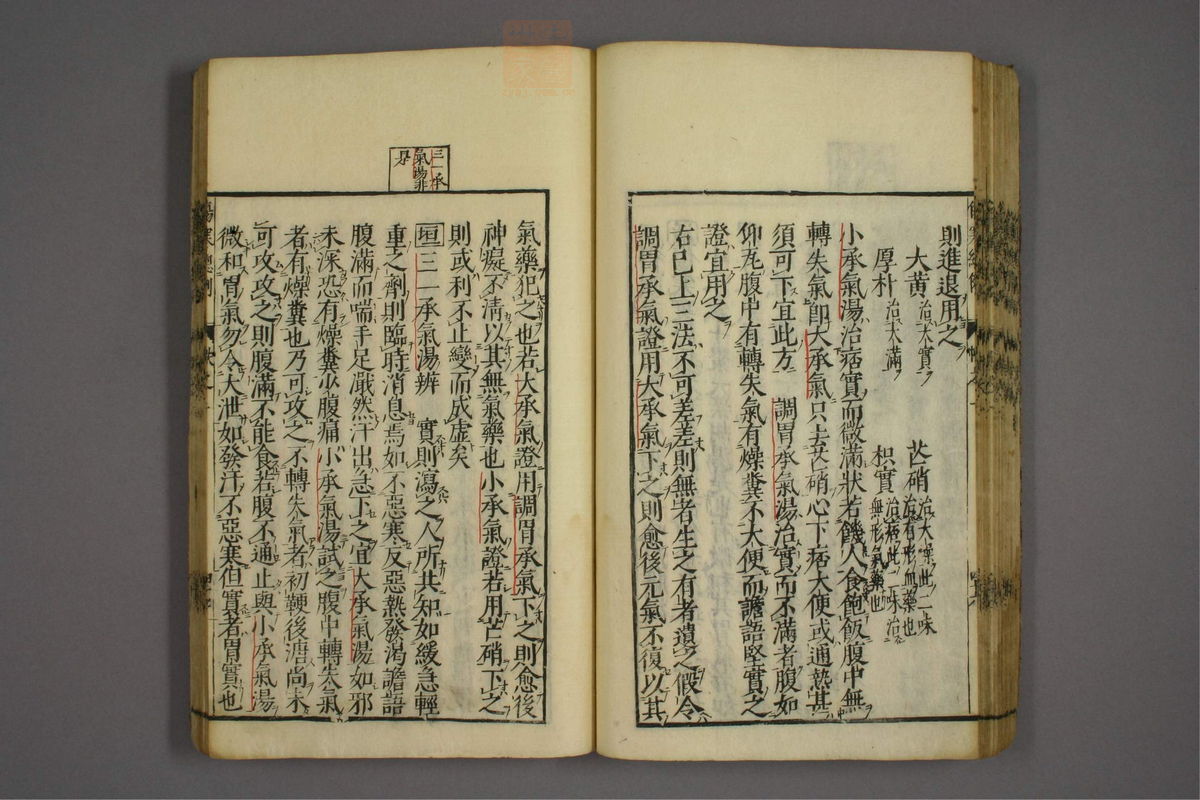 則進退用之
大黄 治大實 芒硝 治大燥此二味治有形血藥也
厚朴 治大滿 枳實 治痞此二味治無形氣藥也
小承氣湯治痞實而微滿狀若饑人食飽飯腹中無
轉失氣即大承氣只去芒硝心下痞大便或通熱甚
須可下宜此方 調胃承氣湯治實而不滿者腹如
仰瓦腹中有轉失氣有燥糞不大便而譫語堅實之
證宜用之
右已上三法不可差差則無者生之有者遺之假令
調胃承氣證用大承氣下之則愈後元氣不復以其
氣藥犯之也若大承氣證用調胃承氣下之則愈後
神癡不清以其無氣藥也小承氣證若用芒硝下之
則或利不止變而成虛矣
三一承氣湯非是
垣 三一承氣湯辨 實則瀉之人所共知如緩急輕
重之劑則臨時消息焉如不惡寒反惡熱發渴譫語
腹滿而喘手足濈然汗出急下之宜大承氣湯如邪
未深恐有燥糞少腹痛小承氣湯試之腹中轉失氣
者有燥糞也乃可攻之不轉失氣者初鞕後溏尚未
可攻攻之則腹滿不能食若腹不通止與小承氣湯
微和胃氣勿令大泄如發汗不惡寒但實者胃實也